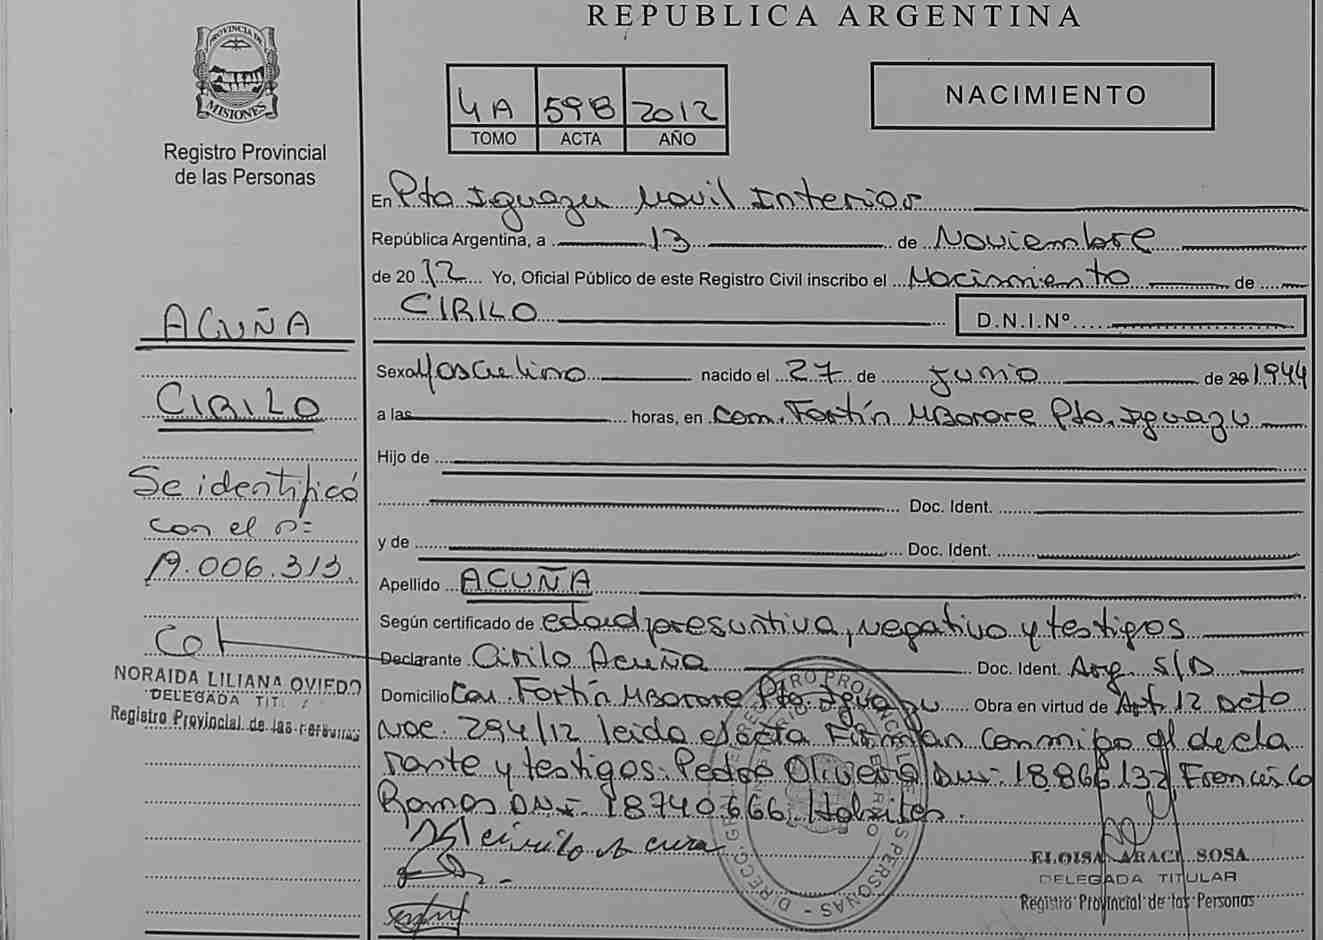 REPUBLICA ARGENTINA
PROVINCIA DE
MISIONES
Registro Provincial
de las Personas
4A 598 2012
TOMO ACTA AÑO
NACIMIENTO
En Pto Iguazu Movil Interior
República Argentina, a 13 de Noviembre
de 2012 Yo, Oficial Público de este Registro Civil inscribo el Nacimiento de
CIRILO
D.N.I.Nº
ACUÑA
CIRILO
Se identificó
con el nº=
19.006.313.
NORAIDA LILIANA OVIEDO
DELEGADA TIT
Registro Provincial de las personas
Sexo Masculino nacido el 27 de Junio de 20 1944
a las horas, en Com. Fortín MBorore Pto. Iguazu
Hijo de
Doc. Ident.
y de Doc. Ident.
Apellido ACUÑA
Según certificado de edad presuntiva, negativo y testigos
Declarante Cirilo Acuña Doc. Ident. Arg. S/D
Domicilio Com. Fortín MBorore Pto. Iguazu Obra en virtud de Art. 12 Dcto
Nac. 294/12 leida el acta Firman conmigo el decla
rante y testigos: Pedro Oliveira DNI: 18.866.132 Francisco
Ramos DNI. 18740.666, Habiles.
cirilo acuña
ELOISA ARACI SOSA
DELEGADA TITULAR
Registro Provincial de las Personas